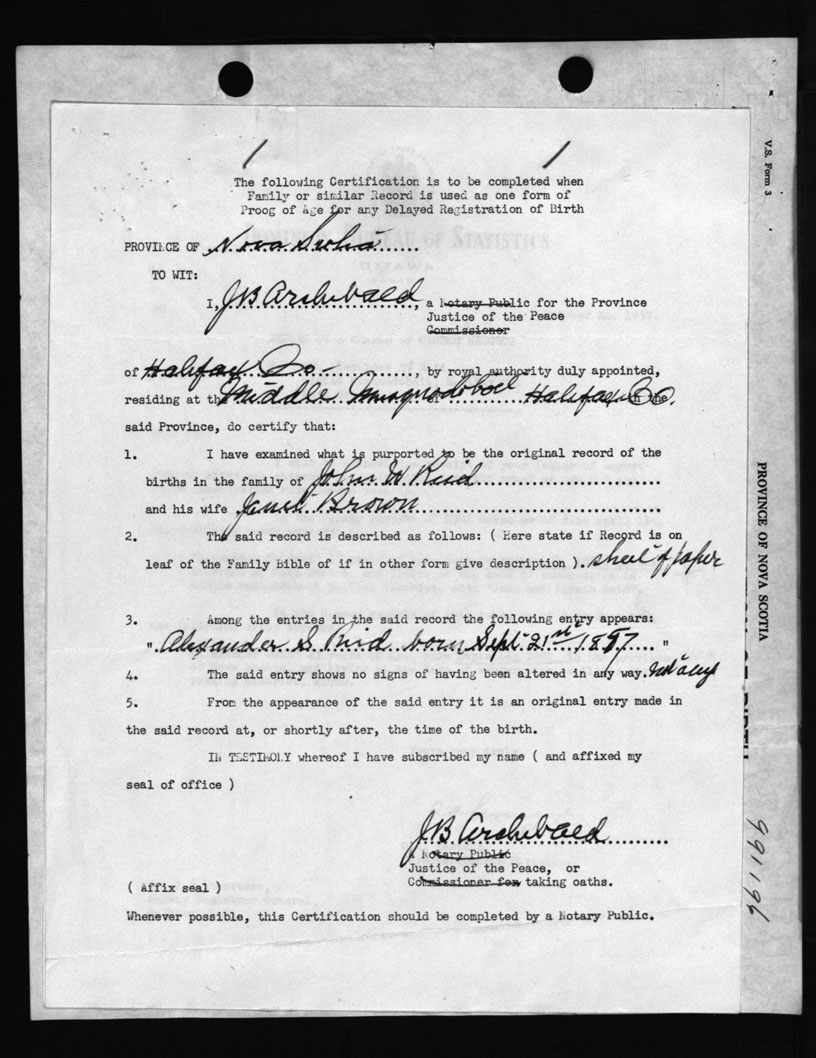 The following Certification is to be completed when
Family or similar Record is used as one form of
Proog of Age for any Delayed Registration of Birth
PROVINCE OF Nova Scotia
TO WIT:
I, J B Archibald, a Notary Public for the Province
Justice of the Peace
Commissioner
of Halifax Co, by royal authority duly appointed,
residing at the Middle Musquodoboit Halifax Co.
said Province, do certify that:
1. I have examined what is purported to be the original record of the
births in the family of John W Reid
and his wife Janet Brown
2. The said record is described as follows: ( Here state if Record is on
leaf of the Family Bible of if in other form give description ). sheet of paper
3. Among the entries in the said record the following entry appears:
" Alexander S Reid born Sept 21st 1897 "
4. The said entry shows no signs of having been altered in any way.
5. From the appearance of the said entry it is an original entry made in
the said record at, or shortly after, the time of the birth.
IN TESTIMONY whereof I have subscribed my name ( and affixed my
seal of office )
J.B. Archibald
A Notary Public
Justice of the Peace, or
Commissioner for taking oaths.
( Affix seal )
Whenever possible, this Certification should be completed by a Notary Public.
V.S. Form 3
PROVINCE OF NOVA SCOTIA
BIRTH
991196
BUREAU OF STATISTICS
OTTAWA